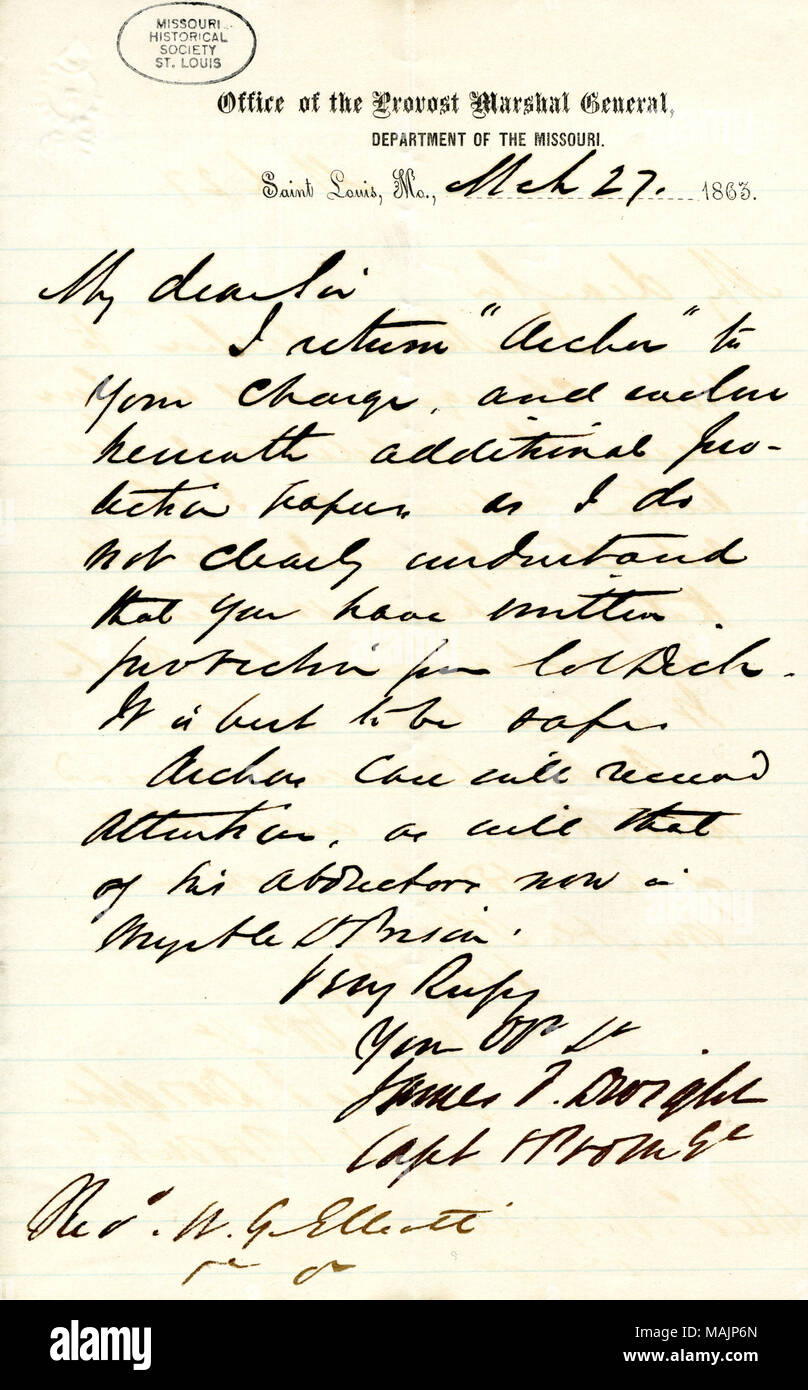 MISSOURI
HISTORICAL
SOCIETY
ST. LOUIS
Office of the Provost Marshal General,
DEPARTMENT OF THE MISSOURI.
Saint Louis, Mo., Mch 27. 1863.
My dear Sir
I return "Archer" to
your charge, and enclose
herewith additional pro-
tection papers as I do
not clearly understand
that you have written
protection from Col Dick.
It is best to be safe.
Archers Case will receive
attention, as will that
of his abductors now in
Myrtle St Prison.
Very Respy
Your Obt St
James F. Dwight
Capt & Pro M Gl
Revd. W. G. Elliott
alamy
Image ID: MAJP6N
www.alamy.com